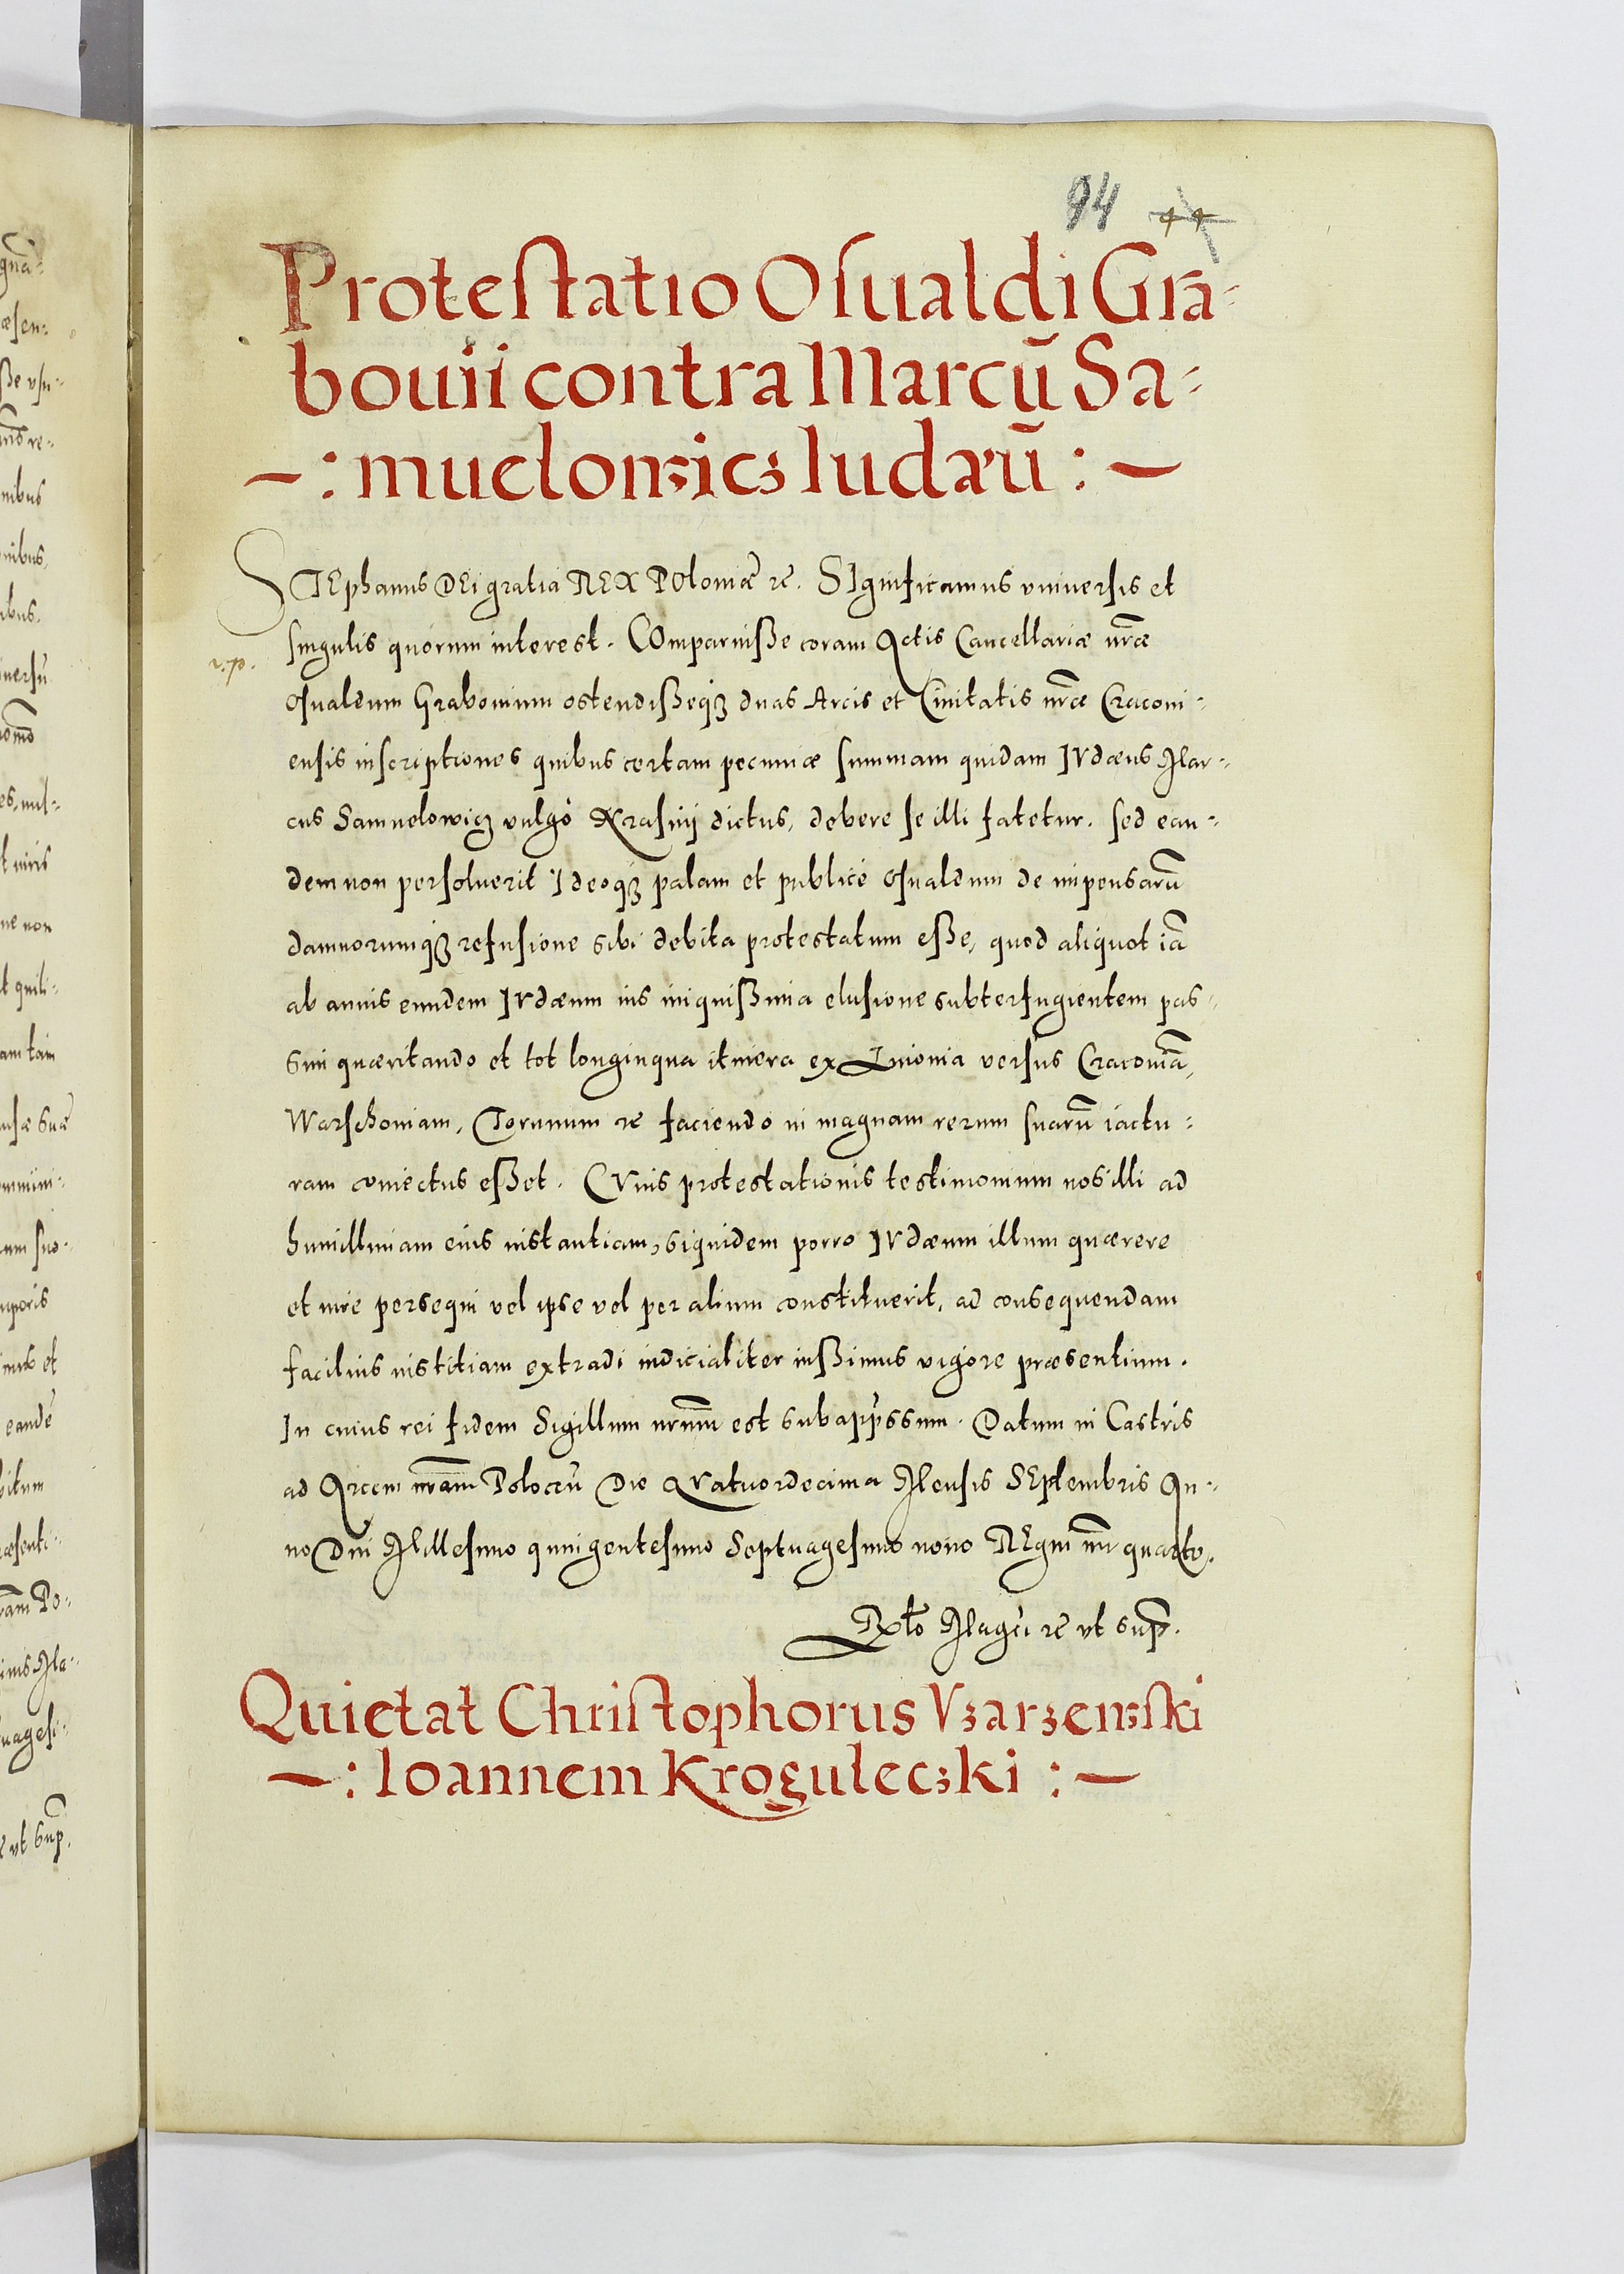 94
Protestatio Osualdi Gra-
bouii contra Marcū Sa-
muelowicz Iudæū
STEphanus DEi gratia REX POloniæ rc. SIgnificamus vniuersis et
singulis quorum interest. COmparuiße coram Actis Cancellariæ nræ
Osualdum Grabouium ostendißeq́z duas Arcis et Ciuitatis nræ Cracoui-
ensis inscriptiones quibus certam pecuniæ summam quidam IVdæus Mar-
cus Samuelowicz vulgò Krasnÿ dictus, debere se illi fatetur. sed ean-
dem non persoluerit Ideoq́z palam et publicè Osualdum de impensarū
damnorumq́z refusione sibi debita protestatum eße, quod aliquot iā
ab annis eundem IVdæum ius iniquißima elusione subterfugientem pas-
sim quæritando et tot longinqua itinera ex Liuonia versus Cracouiā,
Warschouiam, Torunum rc faciendo in magnam rerum suarū iactu-
ram coniectus eßet. CVius protestationis testimonium nos illi ad
humillimam eius instantiam, siquidem porro IVdæum illum quærere
et iure persequi vel ipse vel per alium constituerit, ad consequendam
facilius iustitiam extradi iudicialiter iußimus vigore præsentium.
In cuius rei fidem Sigillum nrum est subappssum. Datum in Castris
ad Arcem nram Polocen̄ Die QVatuordecima Mensis SEptembris An-
no Dni Millesimo quingentesimo Septuagesimo nono REgni nri quarto.
Rlto Magci rc vt sup.
Quietat Christophorus Vzarzewski
Ioannem Kroguleczki